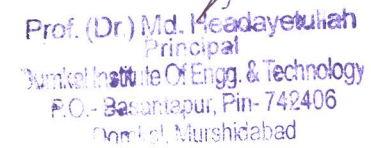 Prof. (Dr.) Md. Headayetullah
Principal
Dumkal Institute Of Engg. & Technology
P.O.- Basantapur, Pin- 742406
Domkal, Murshidabad